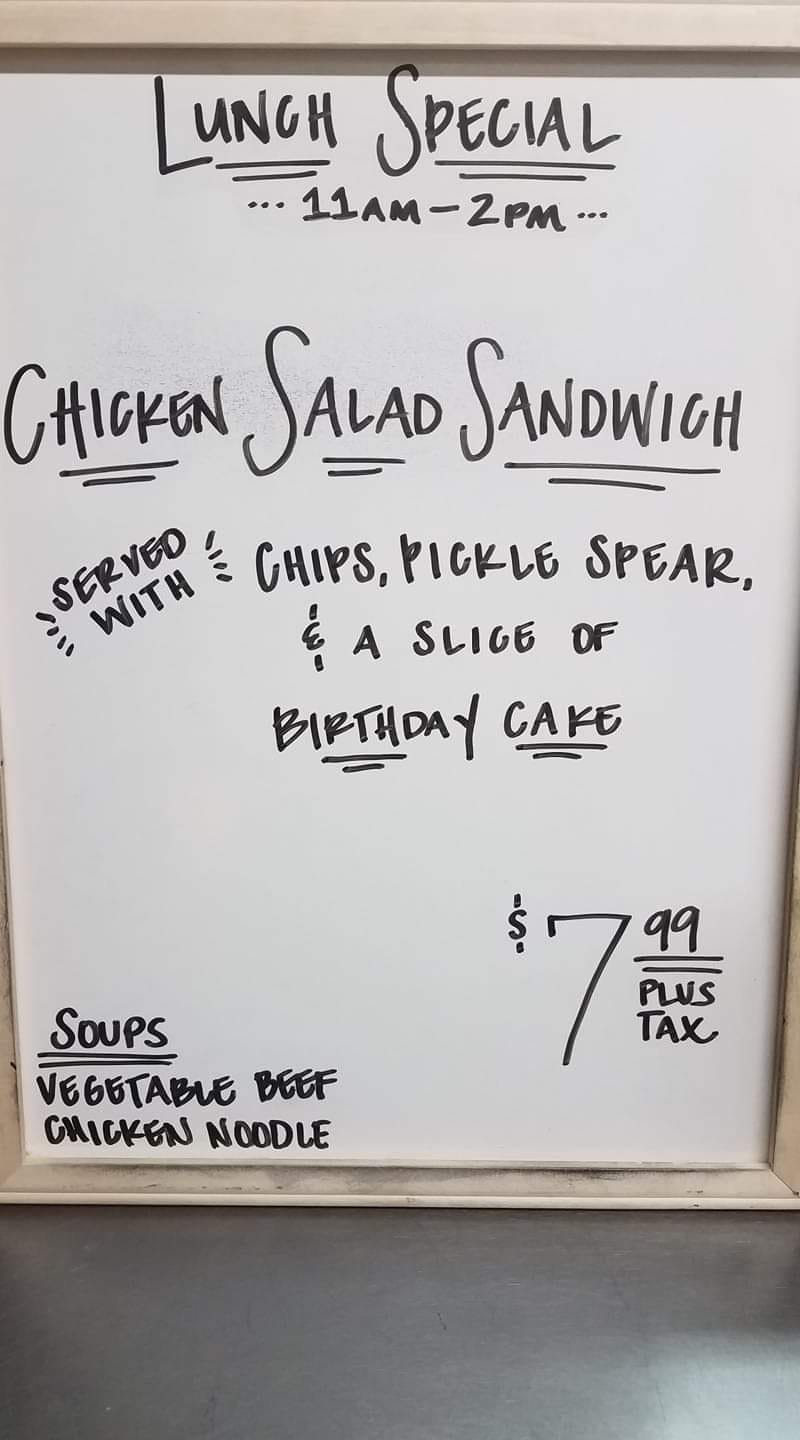 LUNCH SPECIAL
... 11AM - 2PM ...
CHICKEN SALAD SANDWICH
SERVED
WITH
CHIPS, PICKLE SPEAR,
& A SLICE OF
BIRTHDAY CAKE
$7 99
PLUS
TAX
SOUPS
VEGETABLE BEEF
CHICKEN NOODLE